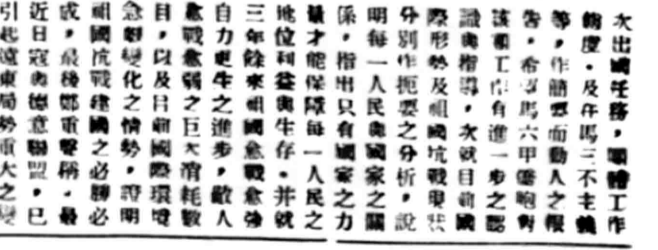 次出國任務，工作
度，及在馬三不主義
等，作簡要而動人之報
告，希望馬六甲僑胞對
該團工作有進一步之認
識與指導，次就目前國
際形勢及祖國抗戰現狀
分別作扼要之分析，說
明每一人民與國家之關
係，指出只有國家之力
量才能保障每一人民之
地位利益與生存。并就
三年餘來祖國愈戰愈強
自力更生之進步，敵人
愈戰愈弱之巨大消耗數
目，以及目前國際環境
急劇變化之情勢，證明
祖國抗戰建國之必勝必
成，最後鄭重聲稱，最
近日寇與德意聯盟，已
引起遠東局勢重大之變